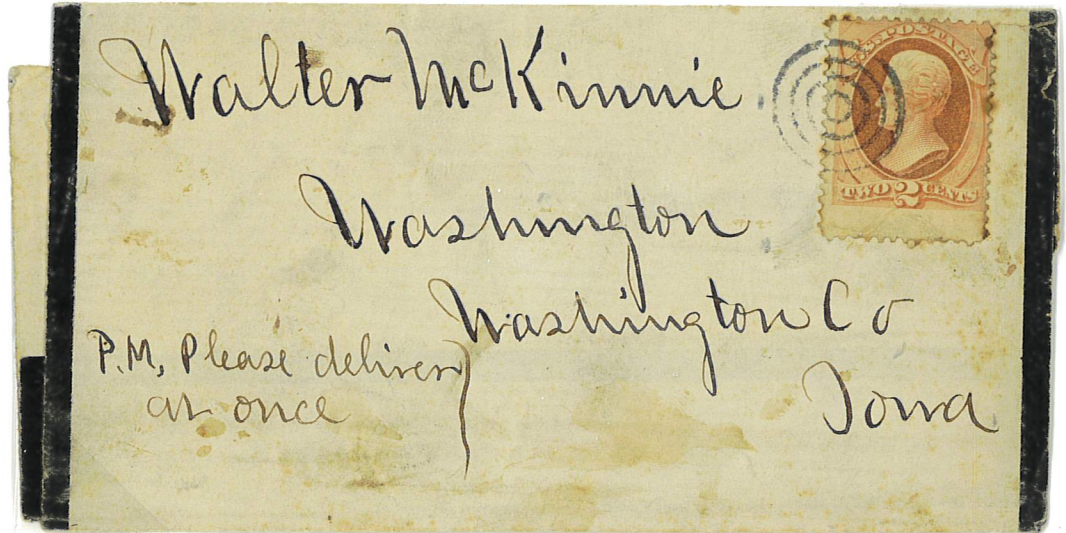 Walter McKinnie
U.S. POSTAGE
TWO 2 CENTS
Washington
Washington Co
Iowa
P.M, Please deliver
at once